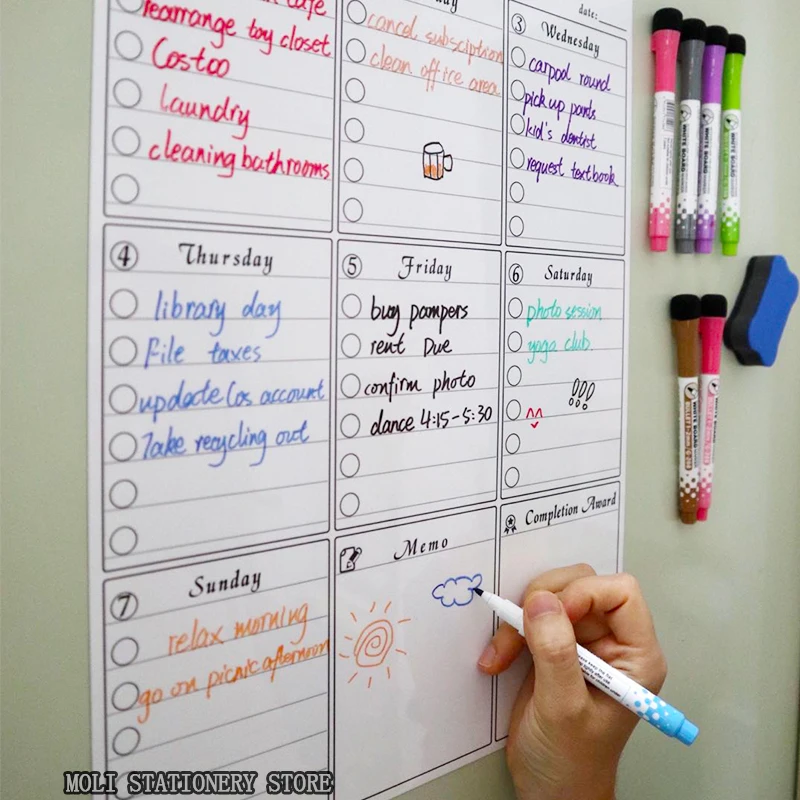 rearrange toy closet
Costoo
laundry
cleaning bathrooms
cancel subsciption
clean office area
date:
3 Wednesday
carpool round
pick up pants
kid's dentist
request textbook
4 Thursday
library day
File taxes
update Cos account
Take recycling out
5 Friday
buy pampers
rent Due
confirm photo
dance 4:15-5:30
6 Saturday
photo session
yoga club
!!!
7 Sunday
relax morning
go on picnic afternoon
Memo
Completion Award
WHITE BOARD
WHITE BOARD
WHITE BOARD
WHITE BOARD
WHITE BOARD
MOLI STATIONERY STORE